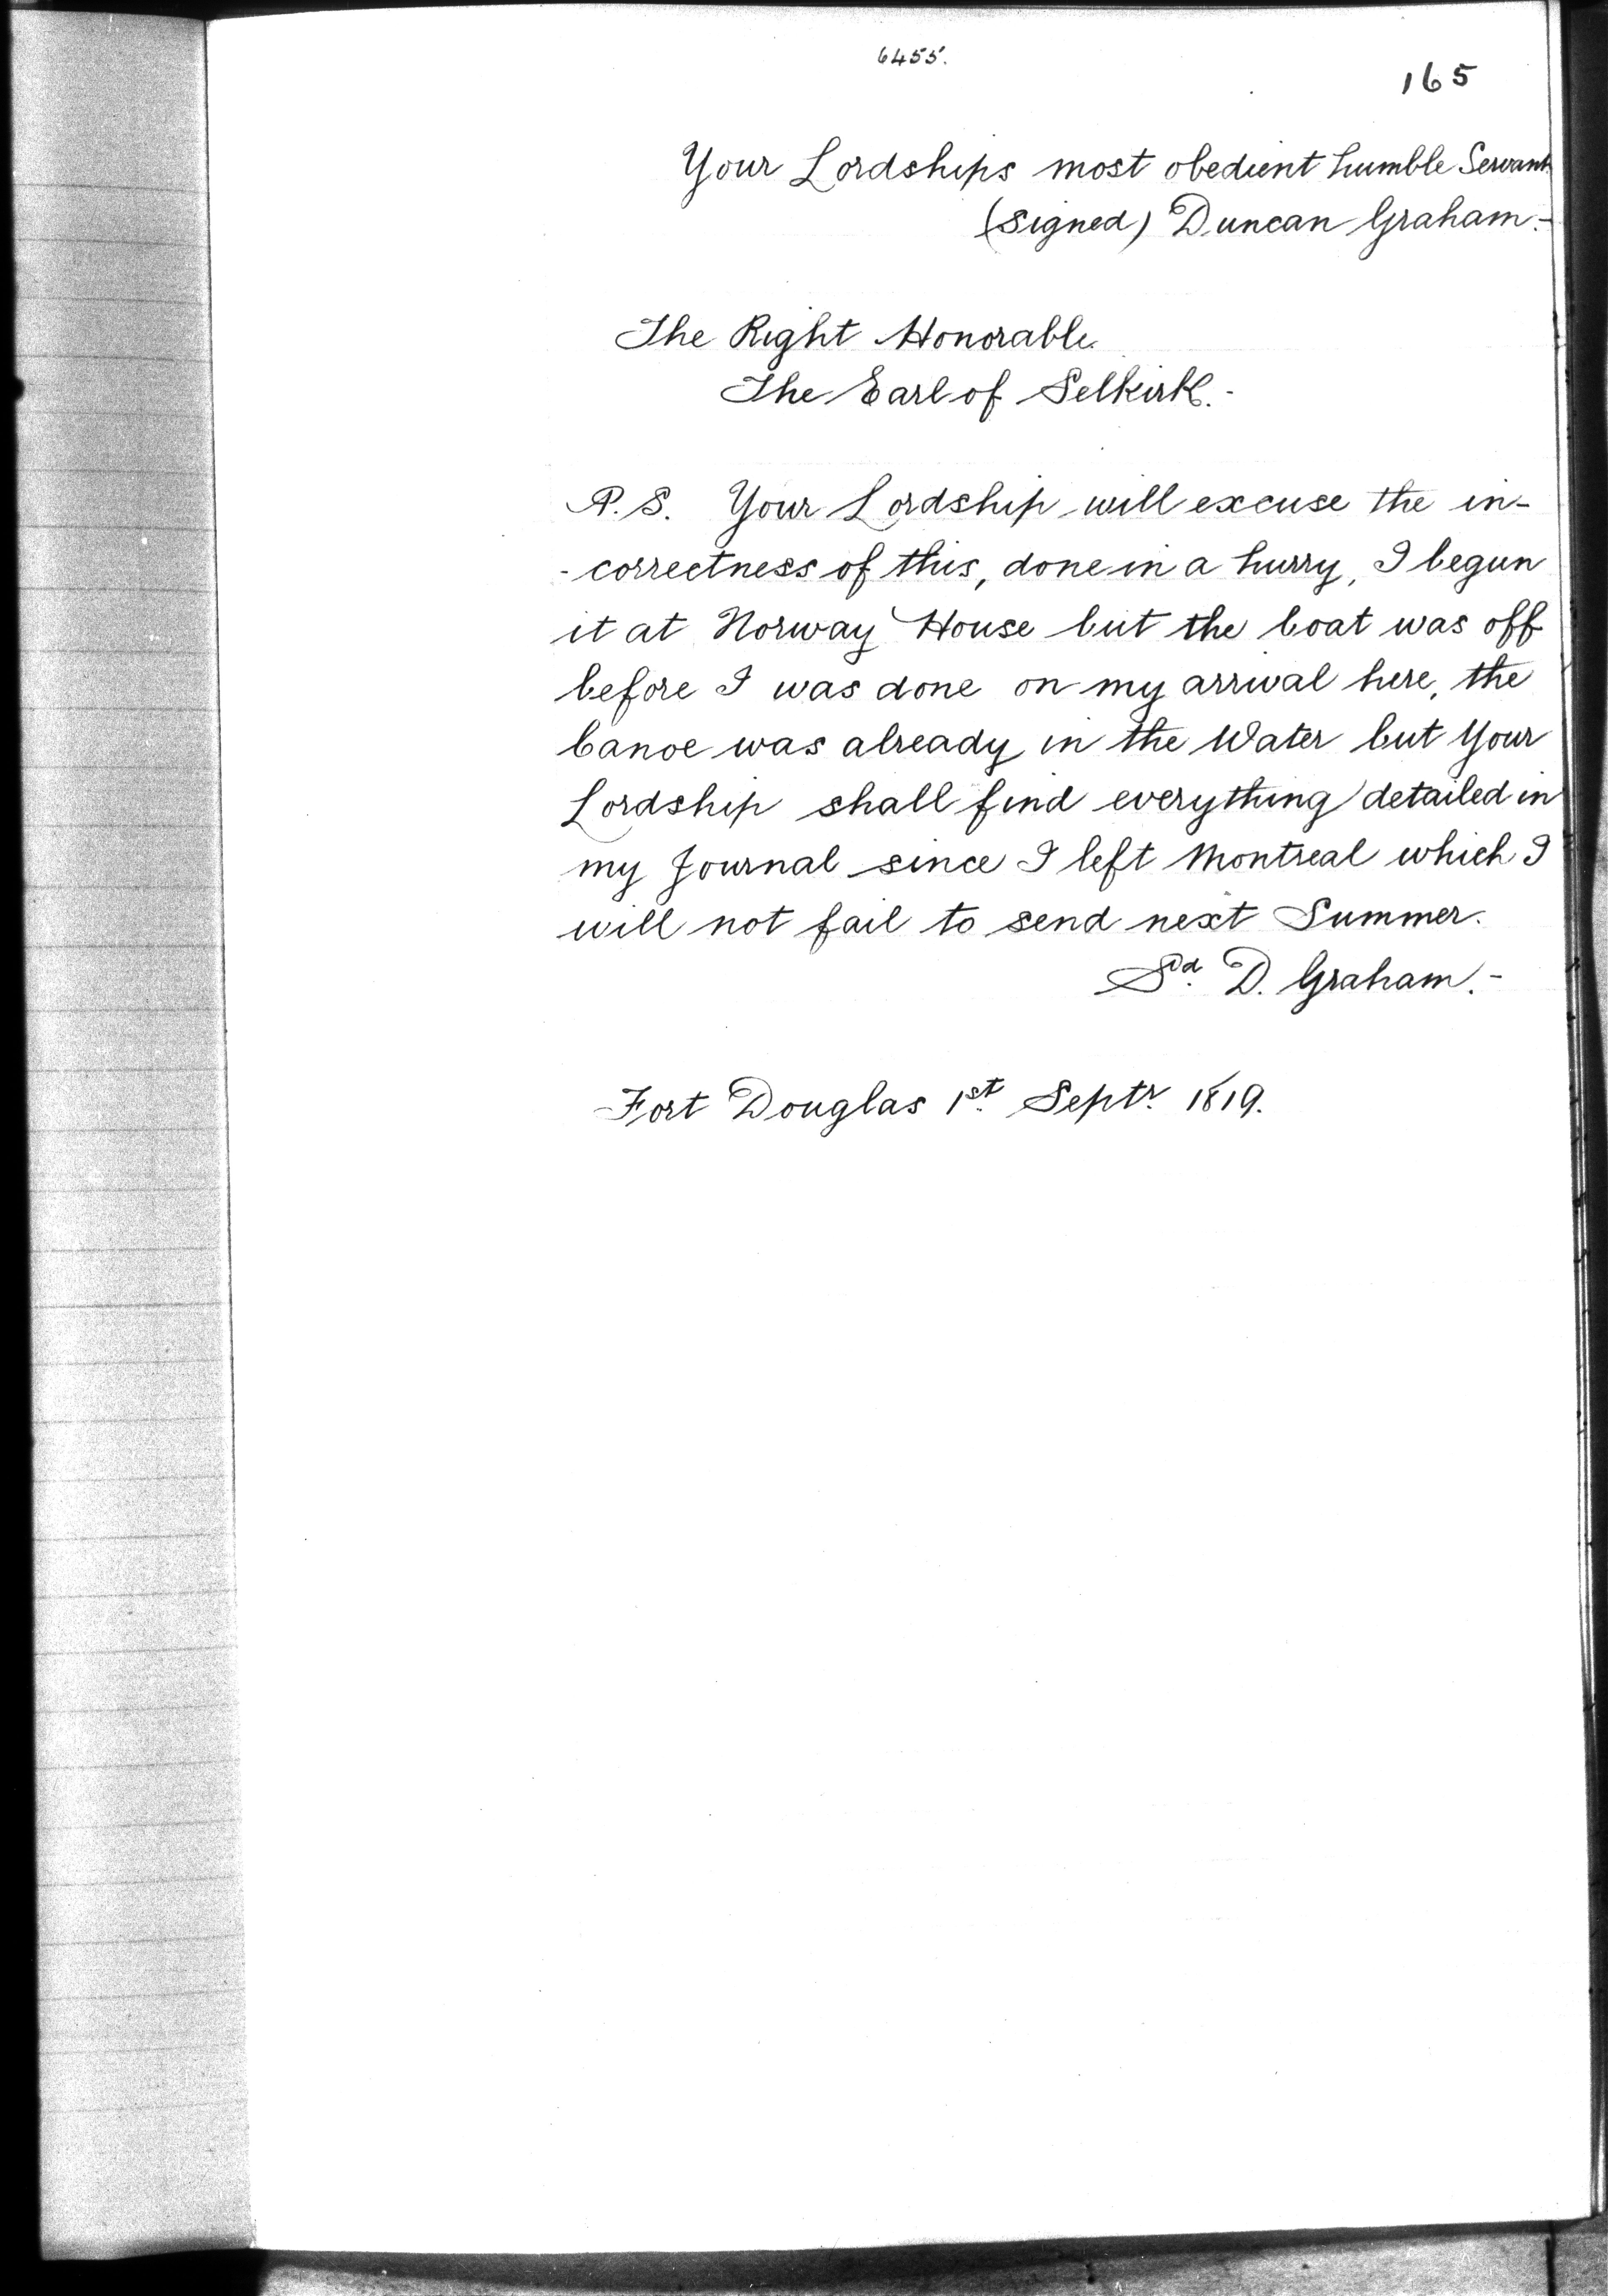 6455.
165
Your Lordships most obedient humble Servant
(signed) Duncan Graham.-
The Right Honorable
The Earl of Selkirk.-
P.S. Your Lordship will excuse the in-
-correctness of this, done in a hurry, I begun
it at Norway House but the boat was off
before I was done on my arrival here, the
Canoe was already in the Water but Your
Lordship shall find everything detailed in
my Journal since I left Montreal which I
will not fail to send next Summer.
Sd. D. Graham.-
Fort Douglas 1st Septr. 1819.